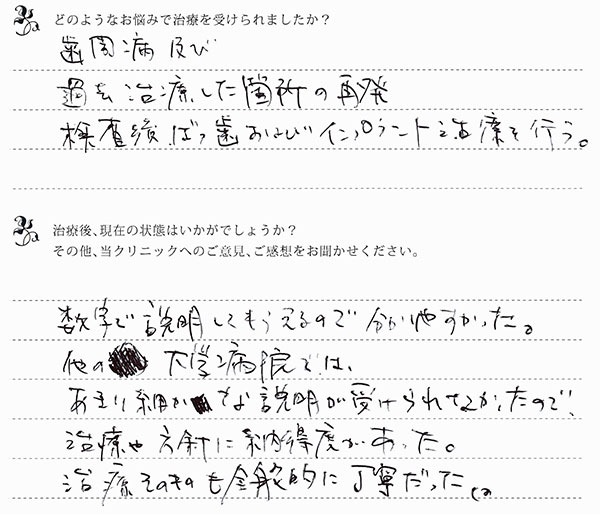 どのようなお悩みで治療を受けられましたか？
歯周病及び
過去治療した箇所の再発
検査後ばっ歯およびインプラント治療を行う。
治療後、現在の状態はいかがでしょうか？
その他、当クリニックへのご意見、ご感想をお聞かせください。
数字で説明してもらえるので分かりやすかった。
他の 大学病院では、
あまり細かな説明が受けられなかったので、
治療や方針に納得度があった。
治療そのものも全般的に丁寧だった。